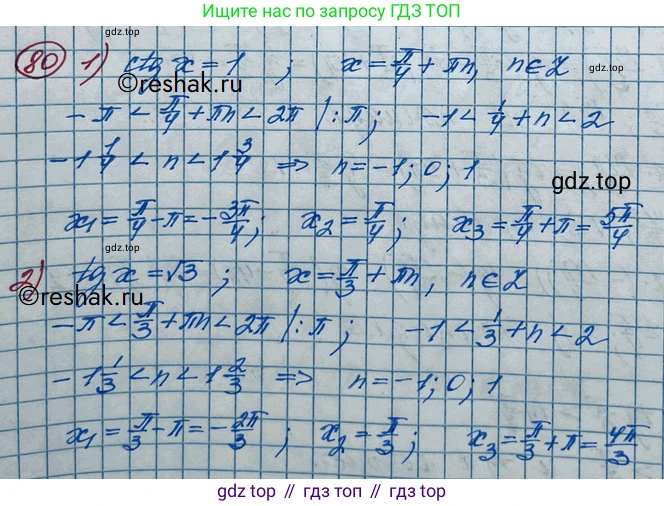 Ищите нас в поисковиках по запросу ГДЗ ТОП
gdz.top
80 1) ctg x = 1 ; x = π/4 + πn, n ∈ Z
©reshak.ru
-π < π/4 + πn < 2π |:π ; -1 < 1/4 + n < 2
-1 1/4 < n < 1 3/4 ⇒ n = -1; 0; 1
gdz.top
x₁ = π/4 - π = -3π/4 ; x₂ = π/4 ; x₃ = π/4 + π = 5π/4
gdz.top
2) tg x = √3 ; x = π/3 + πn, n ∈ Z
©reshak.ru
-π < π/3 + πn < 2π |:π ; -1 < 1/3 + n < 2
-1 1/3 < n < 1 2/3 ⇒ n = -1; 0; 1
x₁ = π/3 - π = -2π/3 ; x₂ = π/3 ; x₃ = π/3 + π = 4π/3
gdz top // гдз топ // gdz.top